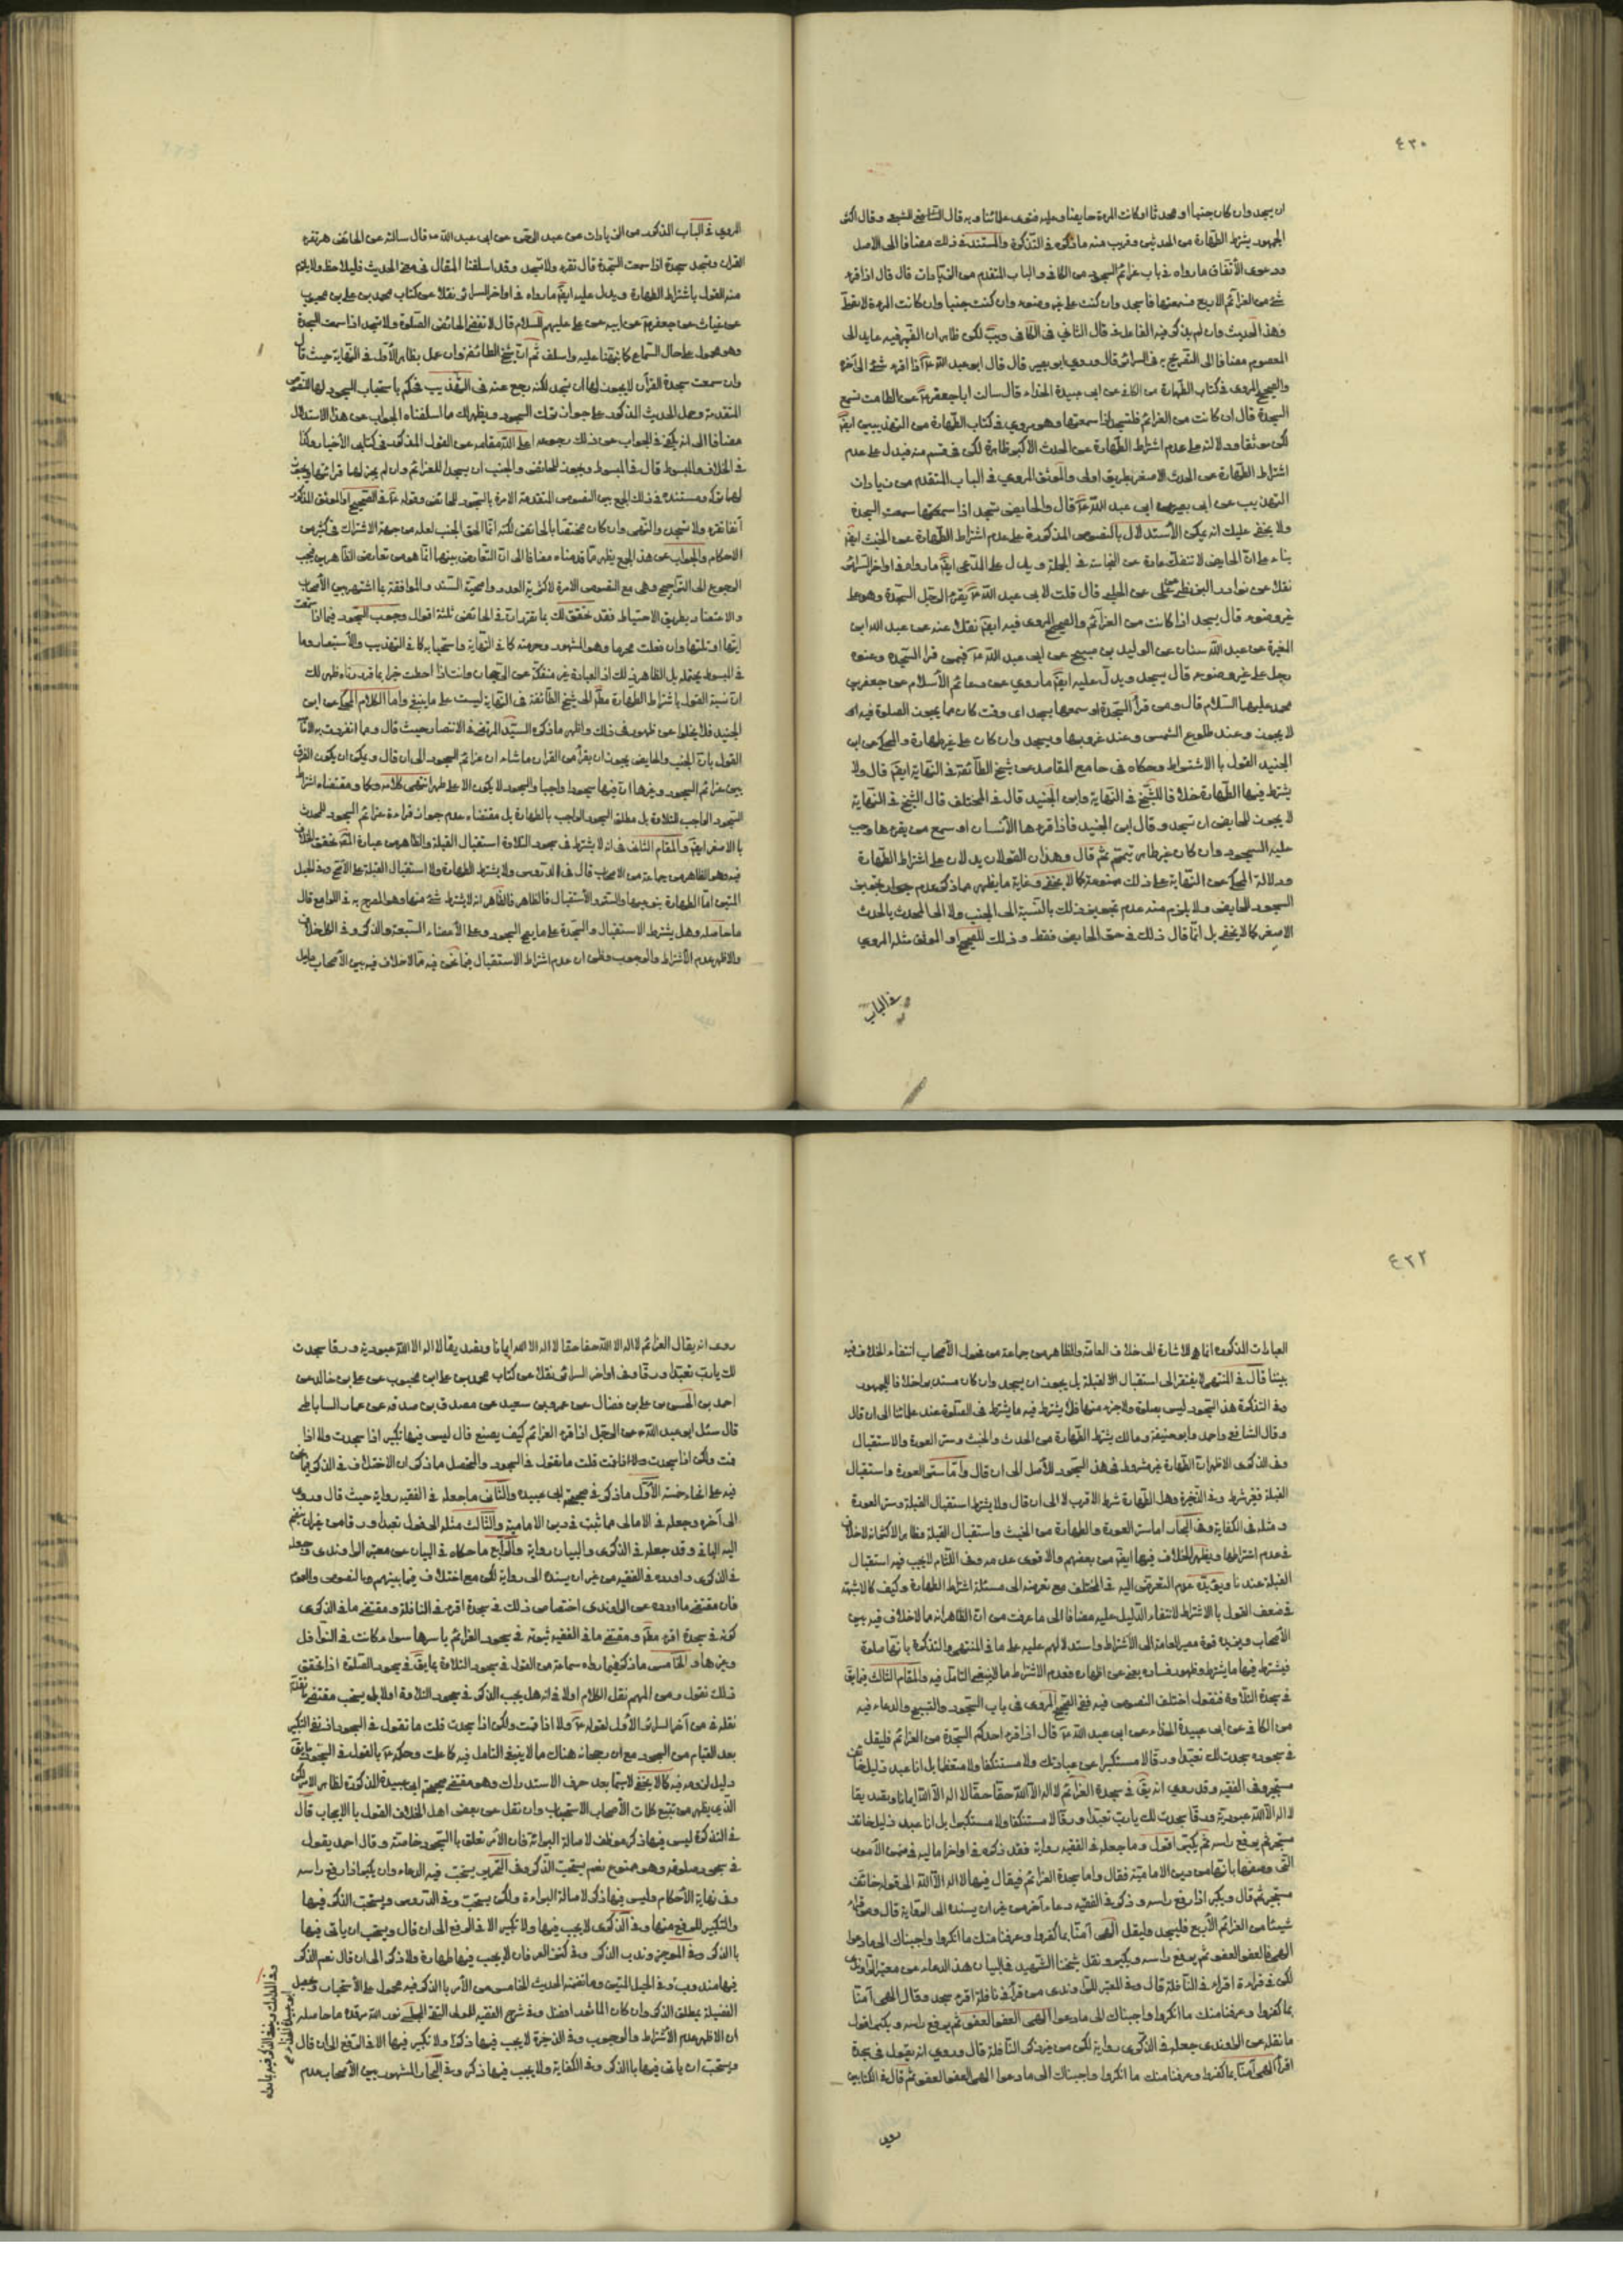 ٤٣٠
ان يسجد وان كان جنبا او محدثا او كانت المرءة حايضا وعليه فتوى علمائنا وبه قال الشافعى الشيخ وقال اكثر
الجمهور يشترط الطهارة من الحدثين وقريب منه ما ذكره فى التذكرة والمستند فى ذلك مضافا الى الاصل
ودعوى الأتفاق ما رواه فى باب عزائم السجود من الكافى والباب المتقدم من الزيادات قال قال اذا قرء
شئ من العزائم الاربع فسمعتها فاسجد وان كنت على غير وضوء وان كنت جنبا وان كانت المرءة لا تصلى
وهذا الحديث وان لم يذكر فيه الفاعل فى قال الثانى فى الكافى ويب لكن ظاهر ان الضمير فيه عايد الى
المعصوم مضافا الى التصريح به فى السرائر قال وروى ابو بصير قال قال ابو عبد الله ع اذا قرء شئ الى آخره
والصحيح المروى فى كتاب الطهارة من الكافى عن ابى عبيدة الحذاء قال سالت ابا جعفر ع عن الطامث تسمع
السجدة قال ان كانت من العزائم فلتسجد اذا سمعتها وهو مروى فى كتاب الطهارة من التهذيبين ايضا
لكن موثقا ودلالته على عدم اشتراط الطهارة عن الحدث الاكبر ظاهرة لكن فى قسم منه فيدل على عدم
اشتراط الطهارة عن الحدث الاصغر بطريق اولى والموثق المروى فى الباب المتقدم من زيادات
التهذيب عن ابى بصير عن ابى عبد الله ع قال والحايض تسجد اذا سمعت السجدة
ولا يخفى عليك انه يمكن الأستدلال بالنصوص المذكورة على عدم اشتراط الطهارة عن الخبث ايضا
بناء على ان الحايض لا تنفك عادة عن النجاسة فى الجملة ويدل على المدعى ايضا ما رواه فى اواخر السرائر
نقلا عن نوادر البزنطى عن الحلبى قال قلت لابى عبد الله ع يقرء الرجل السجدة وهو على
غير وضوء قال يسجد اذا كانت من العزائم والصحيح المروى فيه ايضا نقلا عنه عن عبد الله بن
المغيرة عن عبد الله سنان عن الوليد بن صبيح عن ابى عبد الله ع فيمن قرا السجدة وعنده
رجل على غير وضوء قال يسجد ويدل عليه ايضا ما روى عن دعائم الأسلام عن جعفر بن
محمد عليهما السلام قال ومن قرأ السجدة او سمعها يسجد اى وقت كان مما يجوز الصلوة فيه او
لا يجوز وعند طلوع الشمس وعند غروبها ويسجد وان كان على غير طهارة والمحكى عن ابن
الجنيد القول بالاشتراط وحكاه فى جامع المقاصد عن شيخ الطائفة فى النهاية ايضا قال ولا
يشترط فيها الطهارة خلافا للشيخ فى النهاية وابن الجنيد قال فى المختلف قال الشيخ فى النهاية
لا يجوز للحايض ان تسجد وقال ابن الجنيد فاذا قرءها الأنسان او سمع من يقرءها وجب
عليه السجود وان كان غير طاهر تيمم ثم قال وهذان القولان يدلان على اشتراط الطهارة
ودلالة المحكى عن النهاية على ذلك ممنوعة كما لا يخفى وغاية ما يظهر مما ذكر عدم جواز
السجود للحايض ولا يلزم منه عدم تجويز ذلك بالنسبة الى الجنب ولا الى المحدث بالحدث
الاصغر كما لا يخفى بل انما قال ذلك فى حق الحايض فقط وذلك للصحيح او الموثق مثله المروى
فى الباب
المروى فى الباب المذكور من الزيادات عن عبد الرحمن عن ابى عبد الله ع قال سالته عن الحائض هل تقرء
القران وتسجد سجدة اذا سمعت السجدة قال تقرء ولا تسجد وقد اسلفنا المقال فى هذا الحديث فليلاحظ ولا يلزم
منه القول باشتراط الطهارة ويدل عليه ايضا ما رواه فى اواخر السرائر نقلا عن كتاب محمد بن على بن محبوب
عن غياث عن جعفر ع عن ابيه عن على عليهم السلام قال لا تقضى الحائض الصلوة ولا تسجد اذا سمعت السجدة
وهو محمول على حال السماع كما نبهنا عليه واسلف ثم ان شيخ الطائفة وان عمل بظاهر الأول فى النهاية حيث قال
وان سمعت سجدة القرآن لا يجوز لها ان تسجد لكنه رجع عنه فى التهذيب فحكم باستحباب السجود لها للنصوص
المتقدمة وحمل الحديث المذكور على جواز ترك السجود ويظهر لك ما اسلفناه الجواب عن هذا الاستدلال
مضافا الى انه يكفى فى الجواب عن ذلك رجوعه اعلى الله مقامه عن القول المذكور فى كتابى الأخبار وكذا
فى الخلاف والمبسوط قال فى المبسوط ويجوز للحائض والجنب ان يسجدا للعزائم وان لم يجز لهما قرائتها ويجوز
لهما تركه ومستنده فى ذلك الجمع بين النصوص المتقدمة الامرة بالسجود للحائض وقوله ع فى الصحيح او الموثق المذكور
آنفا تقرء ولا تسجد والنهى وان كان مختصا بالحائض لكنه انما الحق الجنب لعله من جهة الاشتراك فى كثير من
الاحكام والجواب عن هذا الجمع يظهر مما قدمناه مضافا الى ان التعارض بينهما انما هو من تعارض الظاهرين يجب
الرجوع الى التراجيح وهى مع النصوص الامرة لاكثرية العدد واصحية السند والموافقة بما اشتهر بين الأصحاب
والاعتضاد بطريق الاحتياط فقد تحقق لك بما تقرر ان فى الحائض ثلثة اقوال وجوب السجود فيما اذا سمعت
آيتها او تلتها وان فعلت محرما وهو المشهور وحرمته كما فى النهاية واستحبابه كما فى التهذيب والأستبصار وما
فى المبسوط يحتمله بل الظاهر ذلك اذ العبادة غير منفكة عن الرجحان وانت اذا احطت خبرا بما قررناه ظهر لك
ان نسبة القول باشتراط الطهارة مطلقا الى شيخ الطائفة فى النهاية ليست على ما ينبغى واما الكلام المحكى عن ابن
الجنيد فلا يخلوا عن ظهور فى ذلك واظهر ما ذكره السيد المرتضى فى الانتصار حيث قال ومما انفردت به الأمامية
القول بان الجنب والحايض يجوز ان يقرأ من القران ما شاء ان عزائم السجود الى ان قال ويمكن ان يكون الفرق
بين عزائم السجود وغيرها ان فيها سجودا واجبا والسجود لا يكون الا على طهر انتهى كلامه ومقتضاه اشتراط
السجود الواجب للتلاوة بل مطلق السجود الواجب بالطهارة بل مقتضاه عدم جواز قراءة عزائم السجود للمحدث
بالاصغر ايضا والمقام الثانى فى انه لا يشترط فى سجود التلاوة استقبال القبلة والظاهر من عبارة
فيه وهو الظاهر من جماعة من الاصحاب قال فى الدروس ولا يشترط الطهارة ولا استقبال القبلة على الأصح وفى الحبل
المتين اما الطهارة والستر والأستقبال فالظاهر انه لا يشترط شئ منها وهو المصرح به فى اللوامع قال
ما حاصله وهل يشترط الاستقبال والسجدة على ما يصح السجود وعلى الأعضاء السبعة والذكر وفى الكل خلاف
والاظهر عدم الأشتراط والوجوب وظنى ان عدم اشتراط الاستقبال فيما نحن فيه مما لا خلاف فيه بين الأصحاب
٤٣٢
العبارات المذكورة انما هو للاشارة الى خلاف العامة والظاهر من جماعة من فحول الأصحاب انتفاء الخلاف فيه
بيننا قال فى المنتهى لا يفتقر الى استقبال الا لقبلة بل يجوز ان يسجد وان كان مستدبرا خلافا للجمهور
وفى التذكرة هذا السجود ليس بصلوة ولا جزء منها فلا يشترط فيه ما يشترط فى الصلوة عند علمائنا الى ان قال
وقال الشافعى واحمد وابو حنيفة ومالك يشترط الطهارة من الحدث والخبث وستر العورة والاستقبال
وفى الذكرى الاظهر ان الطهارة غير مشروط فى هذا السجود للأصل الى ان قال واما ستر العورة واستقبال
القبلة فغير شرط وفى الذخيرة وهل الطهارة شرط الاقرب لا الى ان قال ولا يشترط استقبال القبلة وستر العورة
ومثله فى الكفاية وفى البحار اما ستر العورة والطهارة من الخبث واستقبال القبلة فظاهر الاكثر انه لا خلاف
فى عدم اشتراطها ويظهر الخلاف فيها ايضا من بعضهم والاقوى عدمه وفى اللثام لا يجب فيه استقبال
القبلة عندنا ويؤيده عدم التعرض اليه فى المختلف مع تعرضه الى مسئلة اشتراط الطهارة وكيف كان لا شبهة
فى ضعف القول بالاشتراط لانتفاء الدليل عليه مضافا الى ما عرفت من ان الظاهر انه مما لا خلاف فيه بين
الأصحاب ويزيده قوة مصير العامة الى الأشتراط واستدلالهم عليه على ما فى المنتهى والتذكرة بانها صلوة
فيشترط فيها ما يشترط وظهور فساده يغنى عن اظهاره فعدم الاشتراط مما لا ينبغى التامل فيه والمقام الثالث فيما يق
فى سجدة التلاوة فنقول اختلف النصوص فيه ففى الصحيح المروى فى باب السجود والتسبيح والدعاء فيه
من الكافى عن ابى عبيدة الحذاء عن ابى عبد الله ع قال اذا قرء احدكم السجدة من العزائم فليقل
فى سجوده سجدت لك تعبدا ورقا لا مستكبرا عن عبادتك ولا مستنكفا ولا متعظما بل انا عبد ذليل خائف
مستجير وفى الفقيه وقد روى انه يق فى سجدة العزائم لا اله الا الله حقا حقا لا اله الا الله ايمانا وتصديقا
لا اله الا الله عبودية ورقا سجدت لك يا رب تعبدا ورقا لا مستنكفا ولا مستكبرا بل انا عبد ذليل خائف
مستجير ثم يرفع راسه ثم يكبر اقول وما جعله فى الفقيه رواية فقد ذكره فى اواخر اماليه فى ضمن الأمور
التى وصفها بانها من دين الامامية فقال واما سجدة العزائم فيقال فيها لا اله الا الله الى قوله خائف
مستجير ثم قال ويكبر اذا رفع راسه وذكر فى الفقيه دعاء آخر من غير ان يسنده الى الرواية قال ومن قرء
شيئا من العزائم الأربع فليسجد وليقل الهى آمنا بما كفروا وعرفنا منك ما انكروا واجبناك الى ما دعوا
الهى فالعفو العفو ثم يرفع راسه ويكبر ونقل شيخنا الشهيد فى البيان هذا الدعاء عن معتبر الراوندى
لكن فى قراءة اقراء فى النافلة قال وفى المعتبر للراوندى من قرأ فى نافلة اقرء سجد وقال الهى آمنا
بما كفروا وعرفنا منك ما انكروا واجبناك الى ما دعوا الهى العفو العفو ثم يرفع راسه ويكبر اقول
ما نقله عن الراوندى جعله فى الذكرى رواية لكن من غير ذكر النافلة قال وروى انه يقول فى سجدة
اقرأ الهى آمنا بما كفروا وعرفنا منك ما انكروا واجبناك الى ما دعوا الهى العفو العفو ثم قال فى الكتابين
روى
روى انه يقال العزائم لا اله الا الله حقا حقا لا اله الا الله ايمانا وتصديقا لا اله الا الله عبودية ورقا سجدت
لك يا رب تعبدا ورقا وفى اواخر السرائر نقلا عن كتاب محمد بن على ابن محبوب عن على بن خالد عن
احمد بن الحسن بن على بن فضال عن عمرو بن سعيد عن مصدق بن صدقه عن عمار الساباطى
قال سئل ابو عبد الله ع عن الرجل اذا قرء العزائم كيف يصنع قال ليس فيها تكبير اذا سجدت ولا اذا
قمت ولكن اذا سجدت قلت ما تقول فى السجود والمتحصل مما ذكر ان الاختلاف فى الذكر فيما نحن
فيه على انحاء خمسة الأول ما ذكر فى صحيحة ابى عبيده والثانى ما جعله فى الفقيه رواية حيث قال وروى
الى آخره وجعله فى الامالى مما ثبت فى دين الامامية والثالث مثله الى قول تعبدا ورقا من غير ان ينضم
اليه الباقى وقد جعله فى الذكرى والبيان رواية والرابع ما حكاه فى البيان عن معتبر الراوندى وجعله
فى الذكرى واورده فى الفقيه من غير ان يسنده الى رواية لكن مع اختلاف فيما بينهم بالخصوص والعموم
فان مقتضى ما اورده عن الراوندى اختصاص ذلك فى سجدة اقرء فى النافلة ومقتضى ما فى الذكرى
كونه فى سجدة اقرء مطلقا ومقتضى ما فى الفقيه ثبوته فى سجود العزائم باسرها سواء كانت فى النوافل
وغيرها والخامس ما ذكر فيما رواه سماعة من القول فى سجود التلاوة بما يق فى سجود الصلوة اذا تحقق
ذلك نقول ومن المهم نقل الكلام اولا فى انه هل يجب الذكر فى سجود التلاوة اولا بل يستحب مقتضى ما تقدم
نقله من آخر السرائر الأول لقوله ع ولا اذا قمت ولكن اذا سجدت قلت ما تقول فى السجود اذ نفى التكبير
بعد القيام من السجود مع ان رجحانه هناك مما لا ينبغى التامل فيه كما علمت وحكمه ع بالقول فى السجود ما يق
دليل لزومه فيه كما لا يخفى لا سيما بعد حرف الاستدراك وهو مقتضى صحيحة ابى عبيدة المذكورة لظاهر الامر لكن
الذى يظهر من تتبع كلمات الأصحاب الاستحباب وان نقل عن بعض اهل الخلاف القول بالايجاب قال
فى التذكرة ليس فيها ذكر موظف لاصالة البرائة فان الأمر تعلق بالسجود خاصة وقال احمد يقول
فى سجود صلوته وهو ممنوع نعم يستحب الذكر وفى التحرير يستحب فيه الدعاء وان يكبر اذا رفع راسه
وفى نهاية الأحكام وليس فيها ذكر لاصالة البراءة ولكن يستحب وفى الدروس ويستحب الذكر فيها
والتكبير للرفع منها وفى الذكرى لا يجب فيها ولا تكبير الا فى الرفع الى ان قال ويستحب ان ياتى فيها
بالذكر وفى الموجز وندب الذكر وفى كنز العرفان لا يجب فيها طهارة ولا ذكر الى ان قال نعم الذكر
فيها مندوب وفى الحبل المتين وما تضمنه الحديث الخامس من الأمر بالذكر فيه محمول على الأستحباب وتحصل
الفضيلة بمطلق الذكر وان كان الماثور افضل وفى شرح الفقيه للمولى التقى المجلسى نور الله مرقده ما حاصله
ان الاظهر عدم الأشتراط والوجوب وفى الذخيرة لا يجب فيها ذكر ولا تكبير فيها الا فى الرفع الى ان قال
ويستحب ان ياتى فيها بالذكر وفى الكفاية ولا يجب فيها ذكر وفى البحار المشهور بين الأصحاب عدم